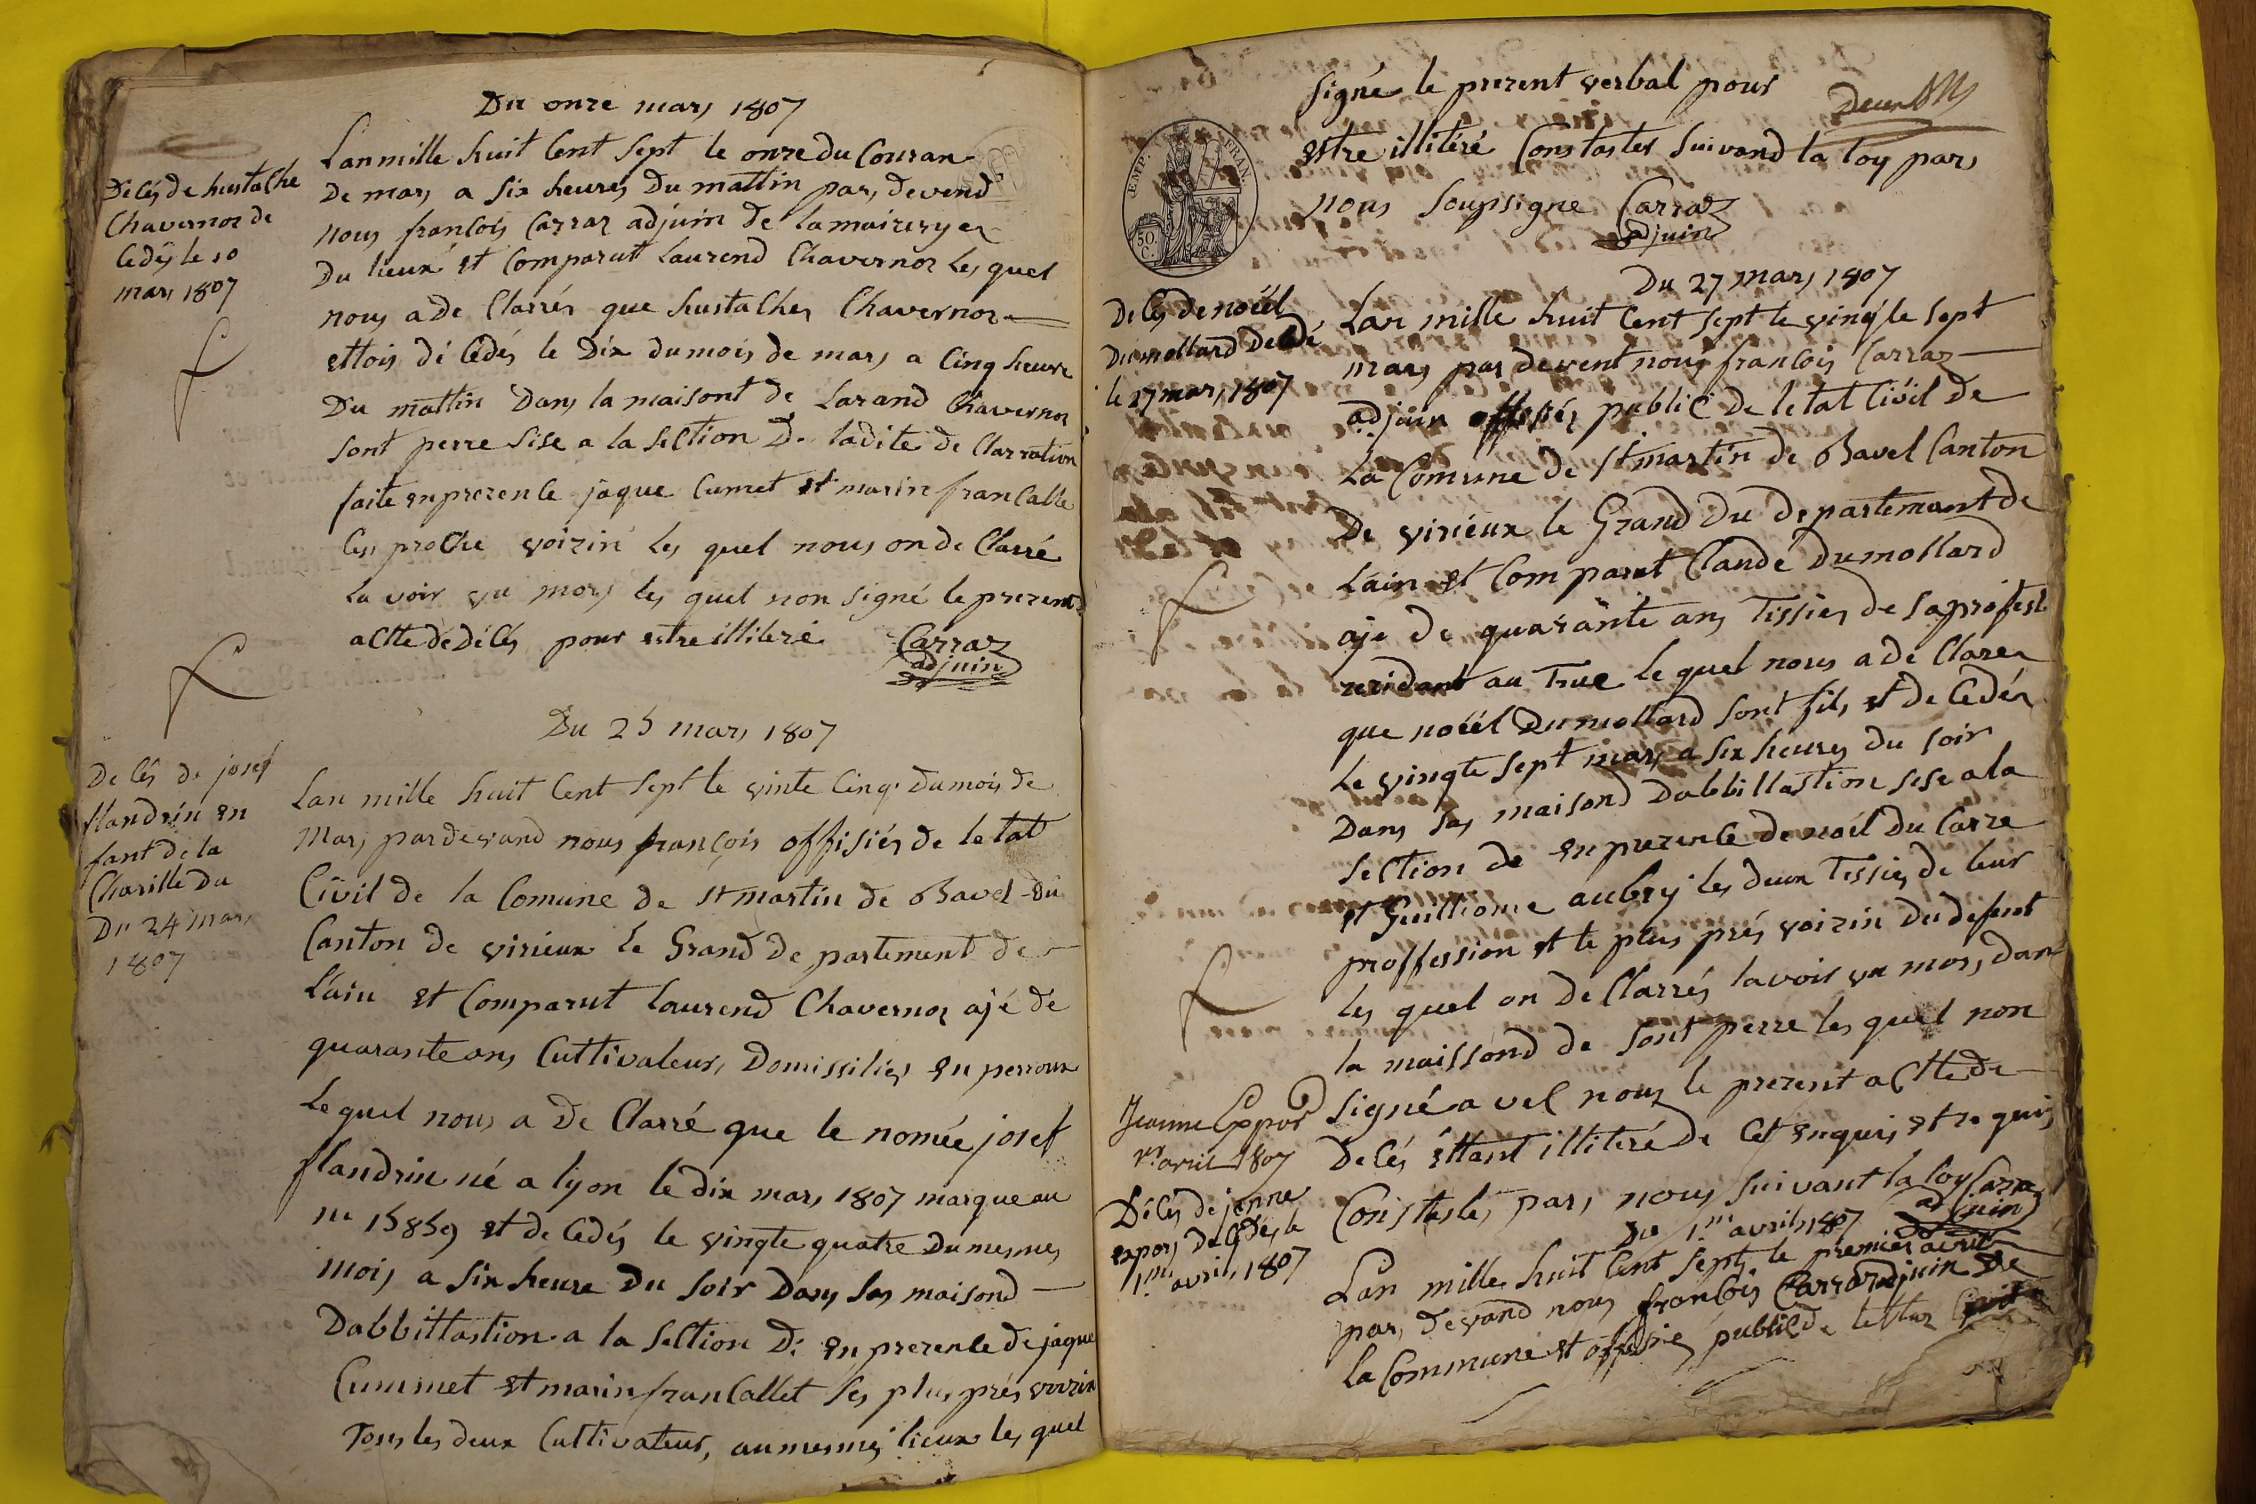 Du onze mars 1807
Décés de hustache
Chavernoz de
Cedés le 10
mars 1807
Lan mille huit Cent Sept le onze du Couran
De mars a Six heures Du mattin pars devend
nous francois Carraz adjuin de la mairerye
Du lieux et Comparut Laurend Chavernoz Les quel
nous a de Clarrés que hustaches Chavernoz
ettois dé Cédés le Dix du mois de mars a Cinq heure
Du mattin Dans la maisont de Larand Chavernoz
sont perre Sise a la Section De ladite de Clarration
faite en prezence jaque Cumet et marin francalle
Ces proche voizin Les quel nous on de Clarré
La voir vu mors les quel non signé le prezent
actte de décés pour estre illiteré Carraz
adjuin
Du 25 mars 1807
De Cés de josef
flandrin en
fant de la
Charille Du
Du 24 mars
1807
Lan mille huit Cent Sept le vinte Cinq du mois de
Mars pardevand nous françois offisiés de le tat
Civil de la Comune de st martin de Bavel du
Canton de virieux le Grand De partement de
L'ain et Comparut Laurend Chavernoz ajé de
quarante ans Cultivateurs, Domissiliés en perroux
Le quel nous a de Clarré que le nomée josef
flandrin né a lyon le dix mars 1807 marque au
n 15859 et de Cedés le vingte quatre du mesmes
mois a Six heure Du soir Dans sas maisond
Dabbittastion a la Section De en prezence de jaque
Cummet et marin francallet Ses plus prés voizin
Tous les deux Cultivateurs, au mesmes lieux les quel
Signé le prezent verbal pour
estre illitéré Constastes Suivand la loy pars
nous Soupsigne Carraz
adjuin
EMP. FRAN.
50
C.
Du 27 mars 1807
De Cés de noëel
Dumollard De Cdé
le 27 mars 1807
Lan mille huit Cent Sept le vingte Sept
mars par devent nous francois Carraz
adjuin offisiés public De le tat Civil De
La Comune de st martin de Bavel Canton
De virieux le Grand Du Departemant de
Lain et Comparut Claude Dumollard
aje de quarante ans Tissies de sa profess
rezidant au Truc le quel nous a de Clarer
que noëel Dumollard sont fils et de Cedés
Le vingte Sept mars a Six heures du soir
Dans sas maisond Dabbittastion sise a la
Section de en prezence de noël Du Carre
et Guilliome aubry les deux Tessies de leur
proffession et le plus prés voizin Du defent
les quel on De Clarrés lavoir vu mors dan
la maissond de Sont perre les quel non
Signé a vec nous le prezent actte de
Décés éttant illiteré De Cet enquis et re quis
Constastes pars nous suivant la loy Carraz
adjuin
Jeanne Expos
1er avril 1807
Décés de jenne
expors De Cedés le
1m avril 1807
Du 1m avril 1807
Lan mille huit Cent Sept le premier avril
pars devand nous francois Carraz adjuin De
la Commune et offisiés public de lettat Civil